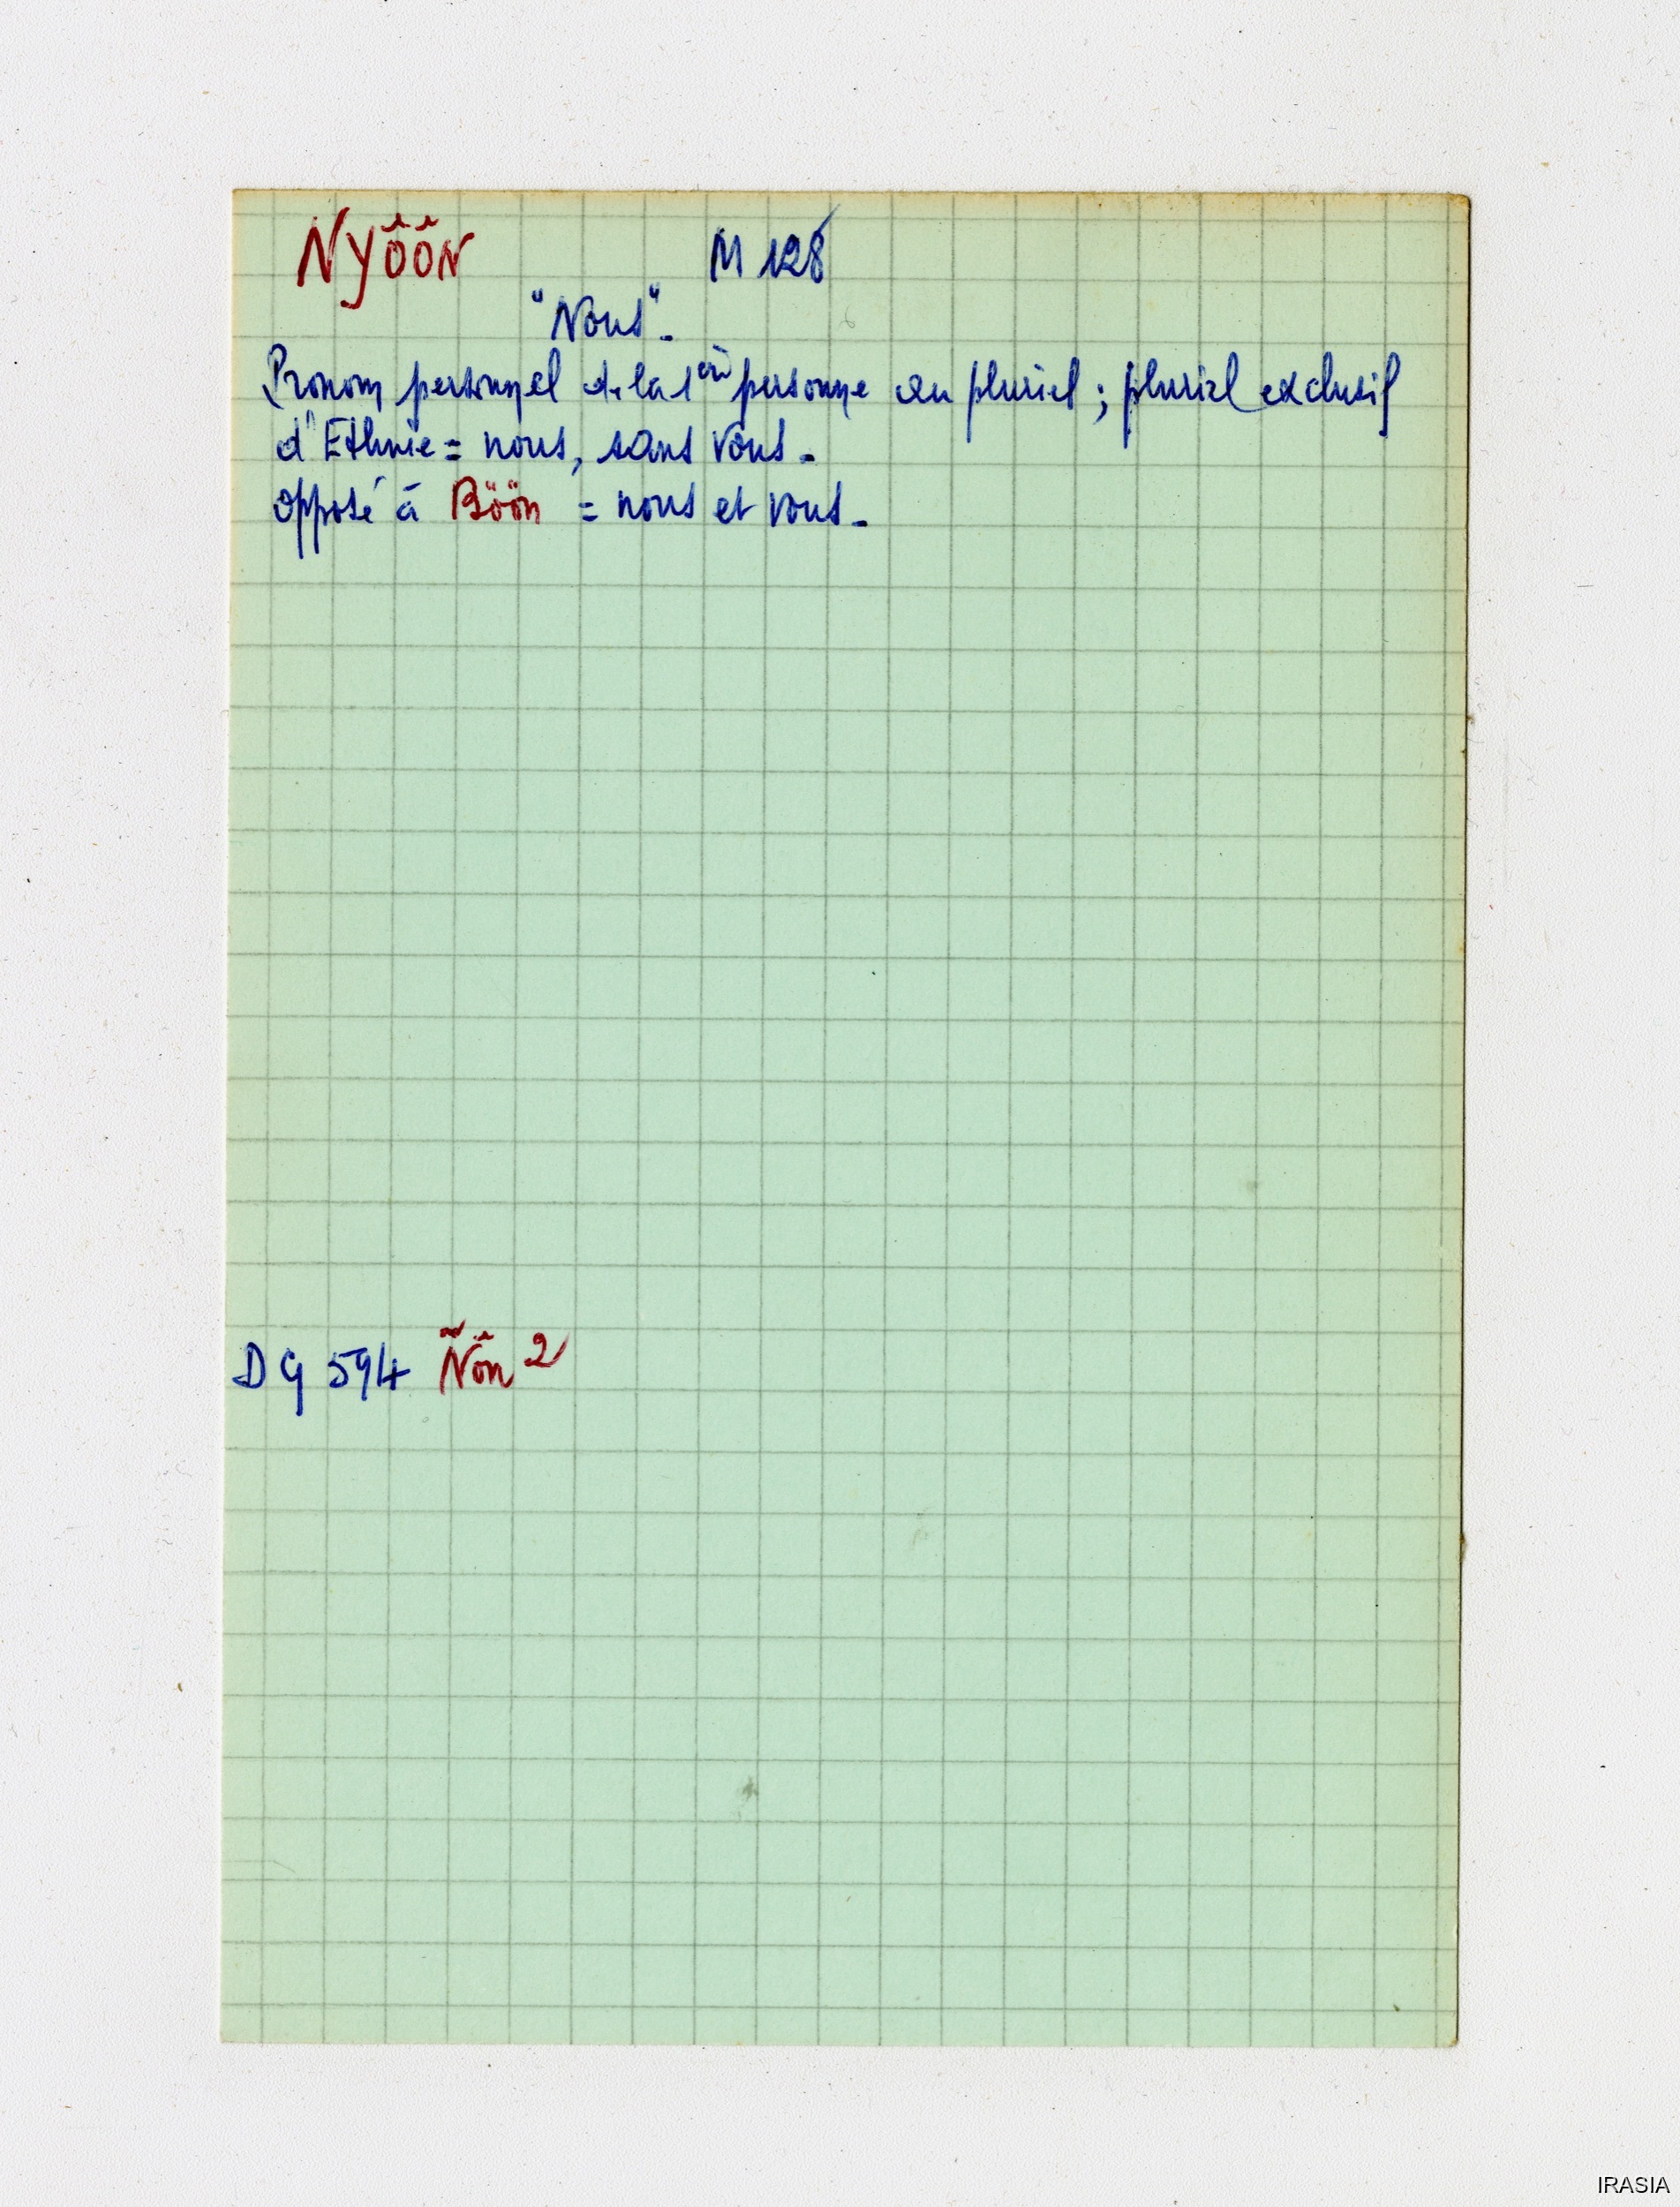 NYÔÔN M 128
"Nous".
Pronom personnel de la 1ère personne au pluriel ; pluriel exclusif
d'Ethnie = nous, sans vous.
opposé à Böön = nous et vous.
DG 594 Ñôn 2
IRASIA